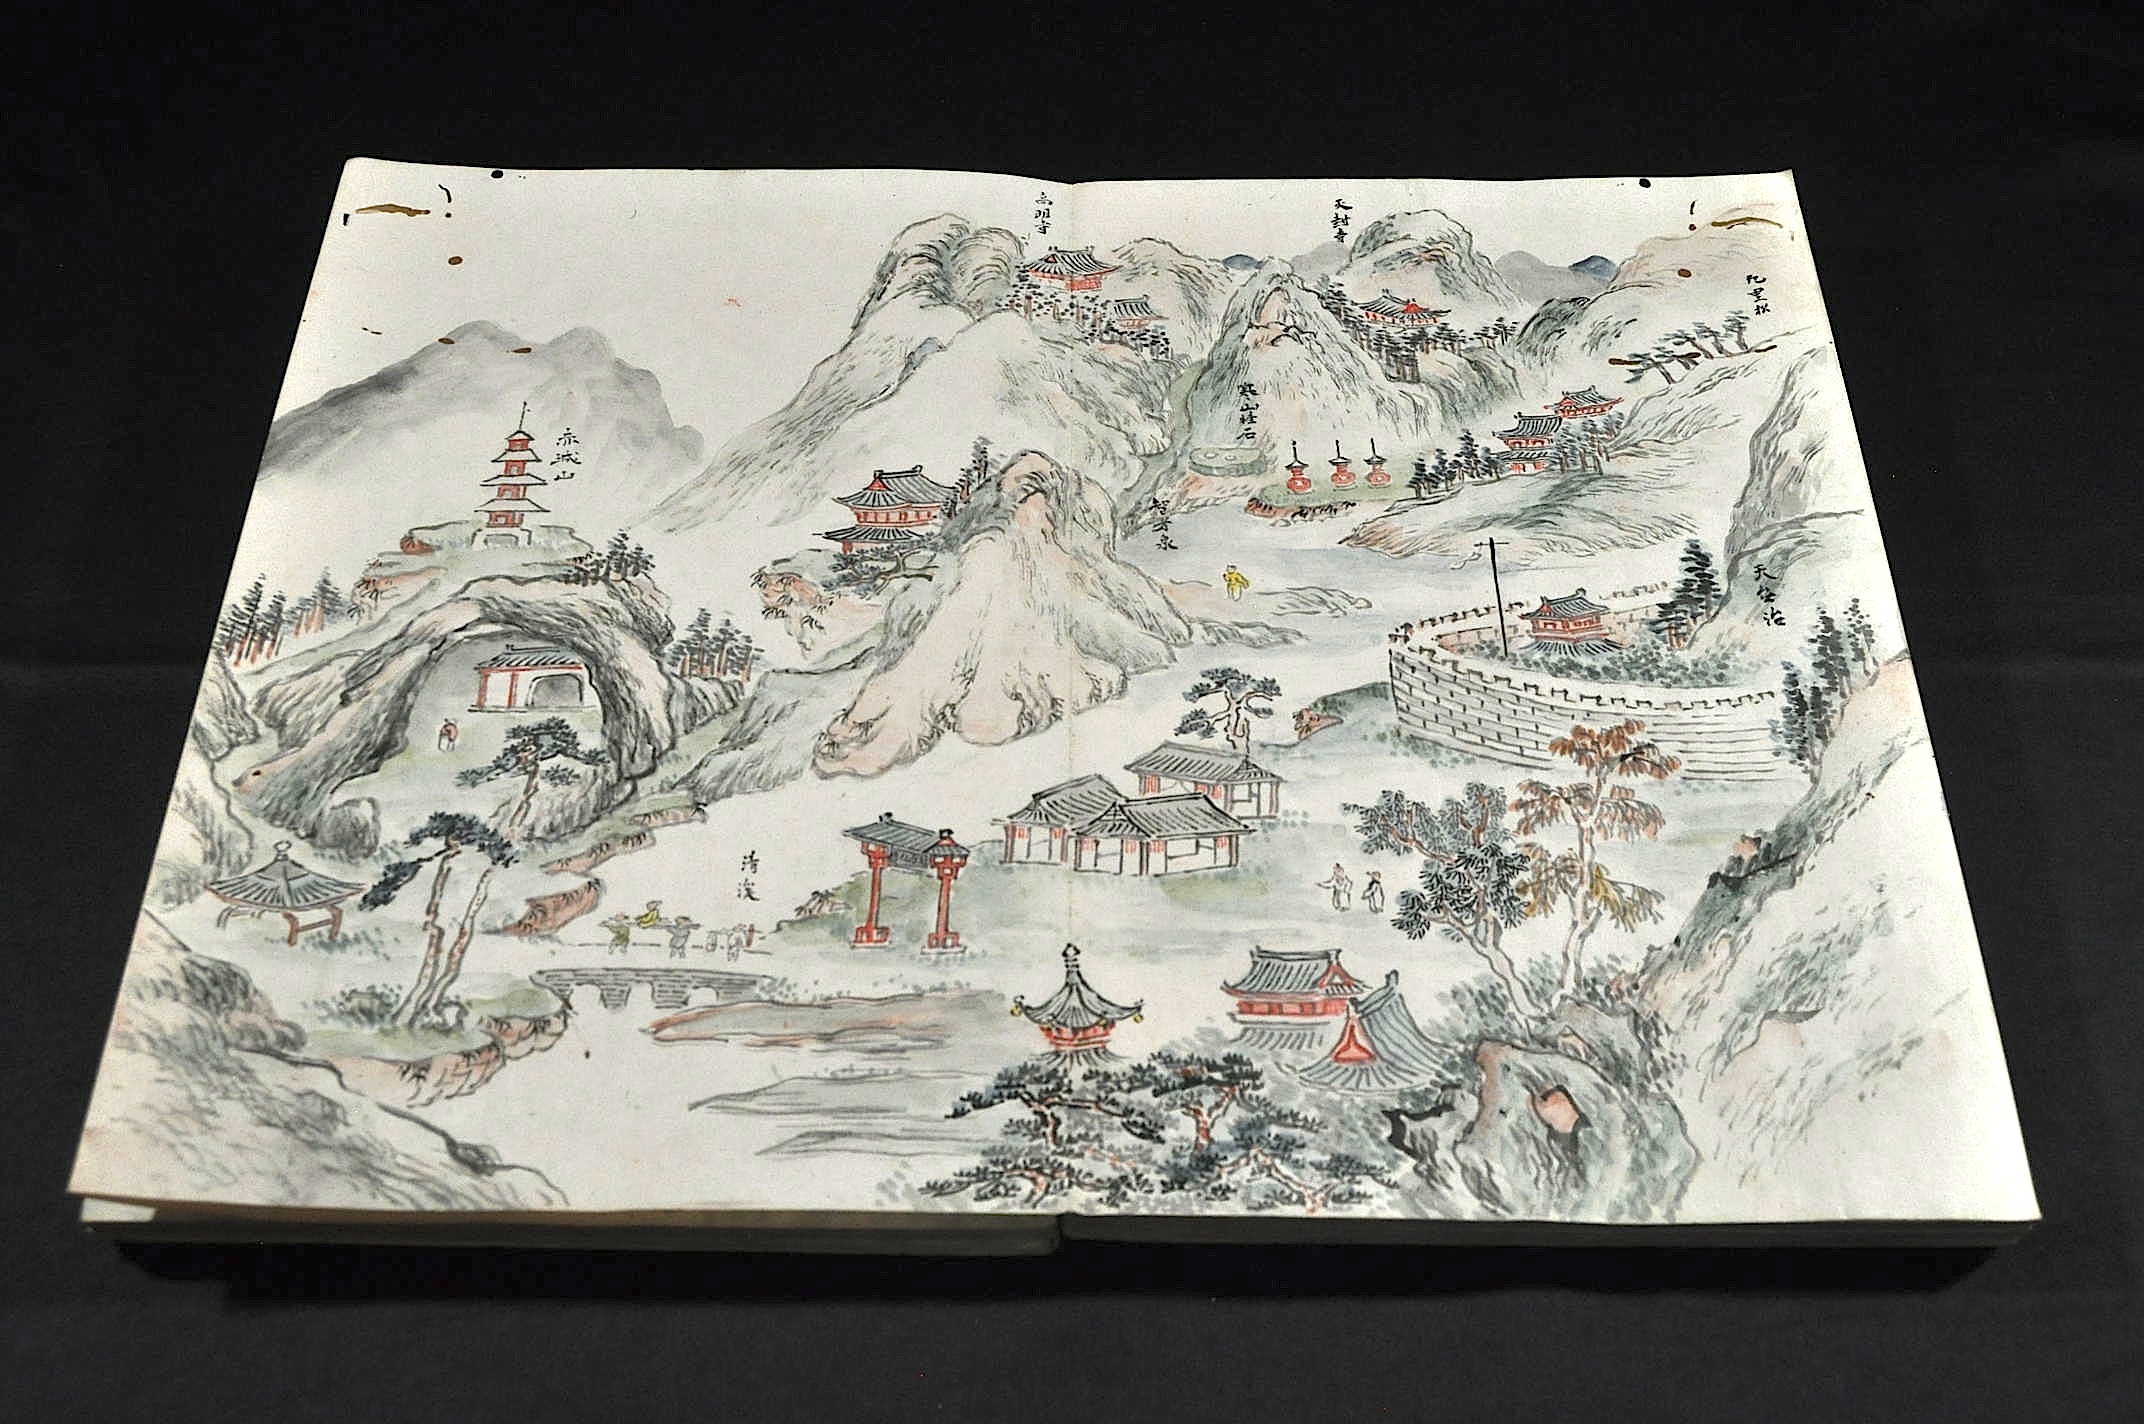 九里松
天封寺
高明寺
寒山拄石
智者泉
天台治
赤城山
清渓